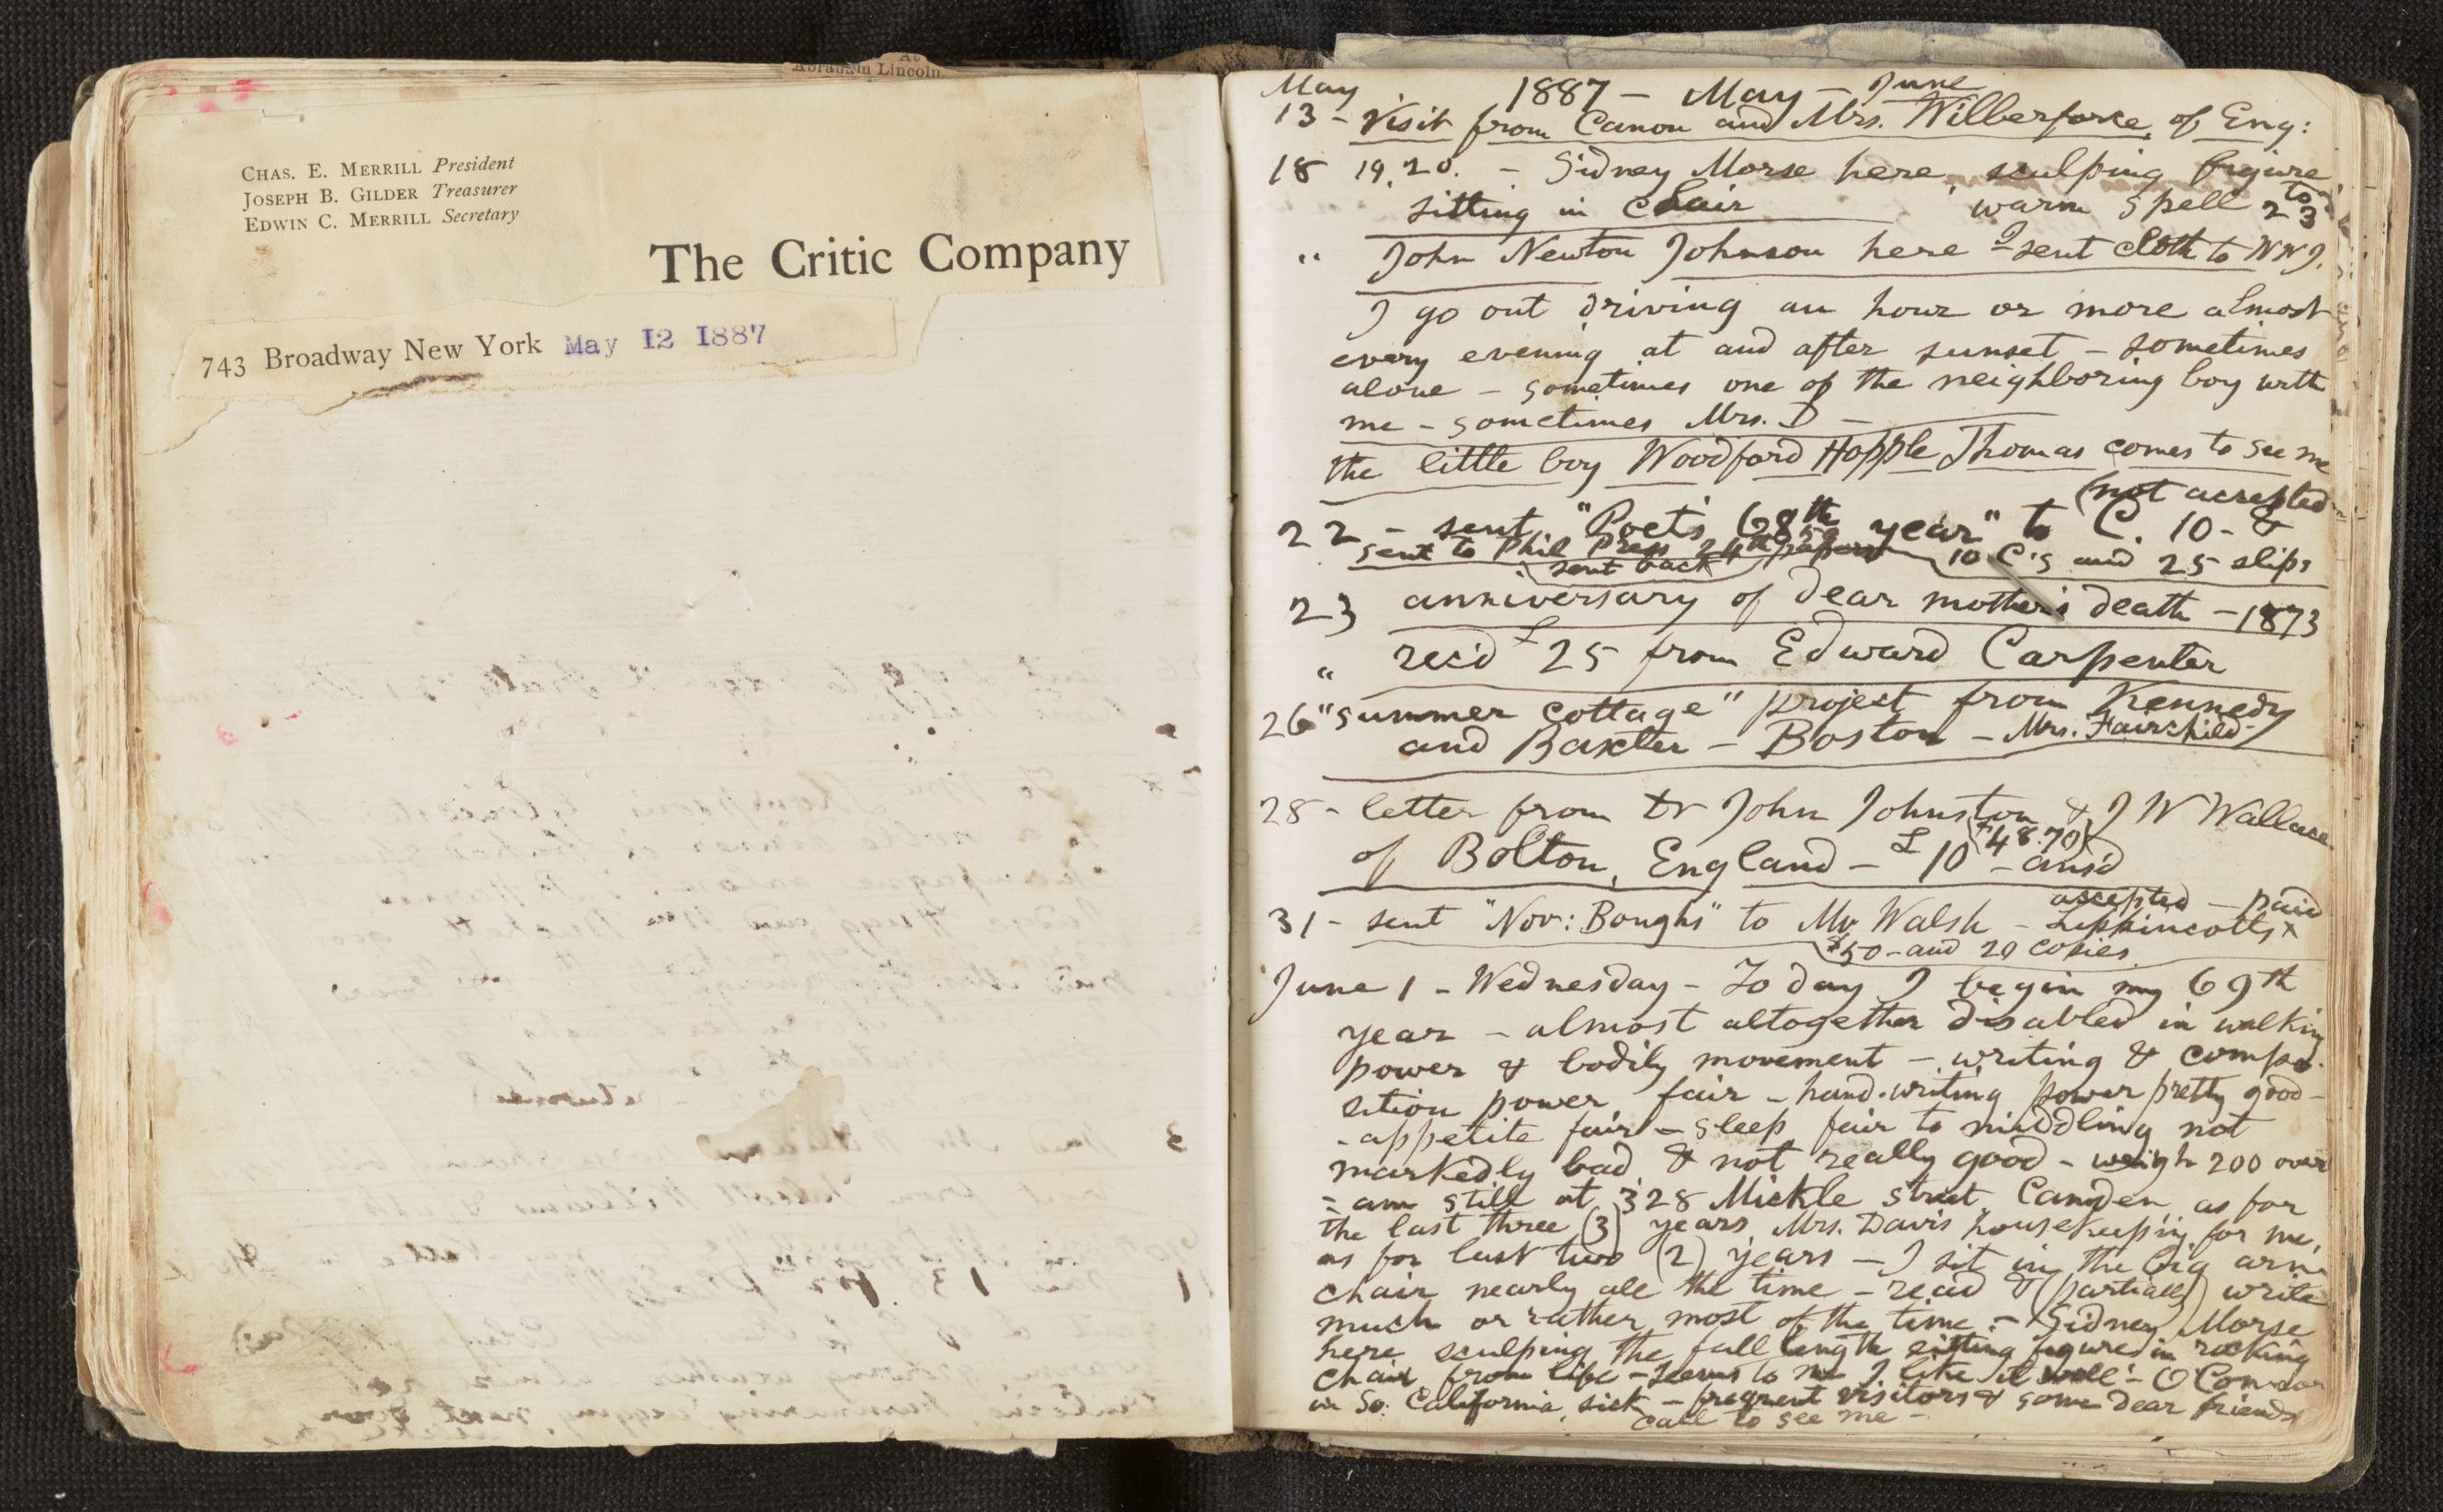 At
Abraham Lincoln
CHAS. E. MERRILL President
JOSEPH B. GILDER Treasurer
EDWIN C. MERRILL Secretary
The Critic Company
743 Broadway New York May 12 1887
May 1887 – May – June
13 – Visit from Canon and Mrs. Wilberforce, of Eng:
18 19, 20. – Sidney Morse here, sculping figure
sitting in chair warm spell to 23
" John Newton Johnson here I sent cloth to W N J.
I go out driving an hour or more almost
every evening at and after sunset – sometimes
alone – sometimes one of the neighboring boy with
me – sometimes Mrs. D –
the little boy Woodford Hopple Thomas comes to see me
(not accepted
22 – sent "Poet's 68th year" to C. 10 – &
sent to Phil Press 24th 10 C's and 25 slips
sent back
23 anniversary of dear mother's death – 1873
" rec'd £25 from Edward Carpenter
26 "summer cottage" project from Kennedy
and Baxter – Boston – Mrs. Fairchild –
28 – letter from Dr John Johnston & J W Wallace
of Bolton, England – £10 ($48.70) – ans'd
accepted – paid
31 – sent "Nov: Boughs" to Mr Walsh – Lippincotts x
$50 – and 20 copies
June 1 – Wednesday – To day I begin my 69th
year – almost altogether disabled in walking
power & bodily movement – writing & compo-
sition power fair – hand-writing power pretty good –
– appetite fair – sleep fair to middling not
markedly bad, & not really good – weigh 200 over
– am still at 328 Mickle street, Camden, as for
the last three (3) years, Mrs. Davis housekeeping for me,
as for last two (2) years – I sit in the big arm
chair nearly all the time – read & (partially) write
much or rather most of the time – Sidney Morse
here sculping the full length sitting figure in rocking
chair from life – seems to me I like it well – O'Connor
in So: California, sick – frequent visitors & some dear friends
call to see me –